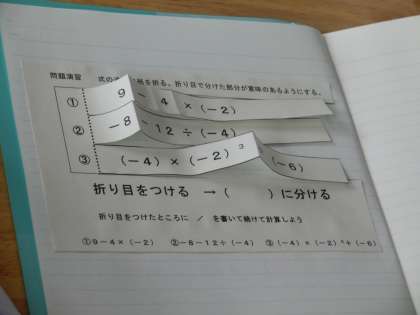 問題演習 式の 紙を折る。折り目で分けた部分が意味のあるようにする。
① 9－4×(－2)
② －8－12÷(－4)
③ (－4)×(－2)³ (－6)
折り目をつける →( )に分ける
折り目をつけたところに / を書いて続けて計算しよう
①9－4×(－2) ②－8－12÷(－4) ③(－4)×(－2)³÷(－6)